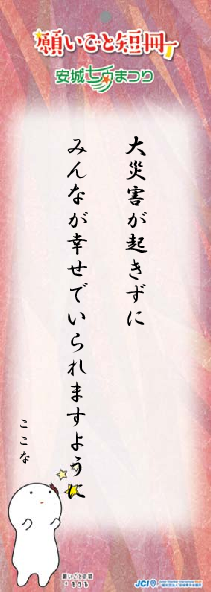 願いごと短冊
安城七夕まつり
大災害が起きずに
みんなが幸せでいられますように
ここな
JCI